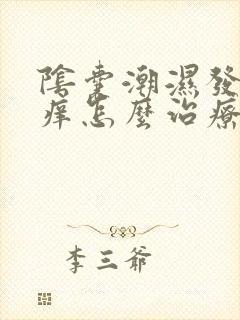 陰囊潮濕發
痒怎麼治療
李三爺